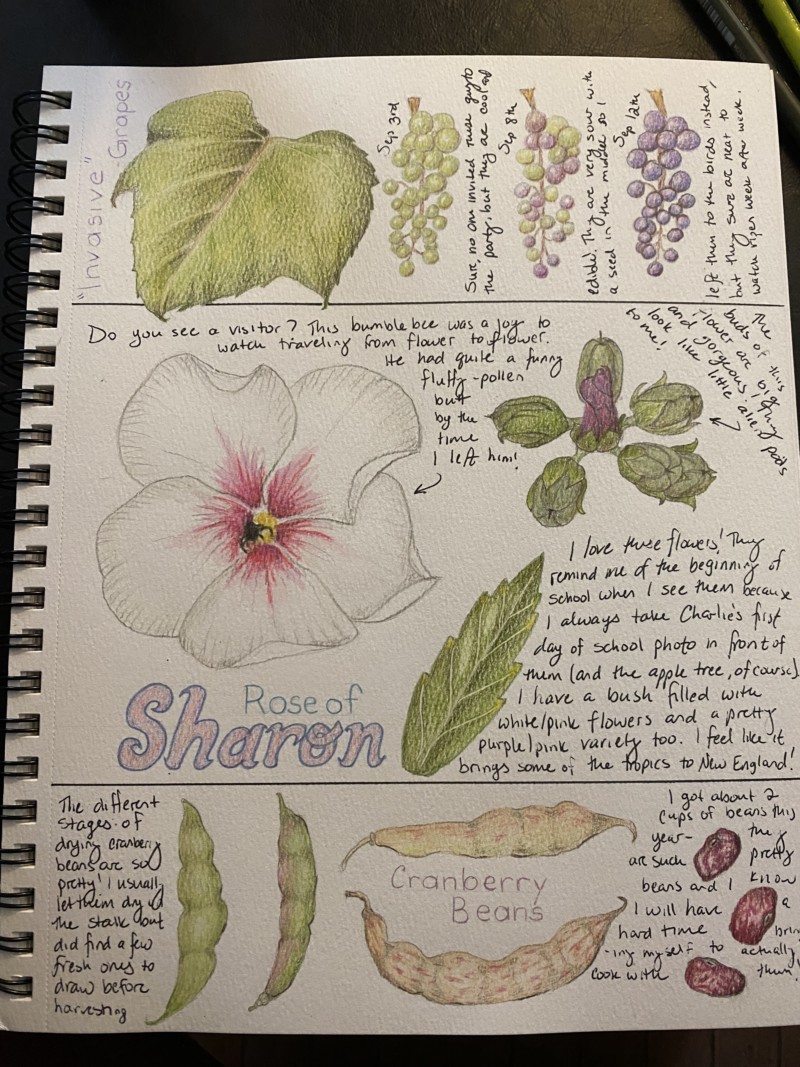 "Invasive" Grapes
Sep 3rd
Sure, no one invited these guys to
the party, but they are cool and
Sep 8th
edible! They are very sour with
a seed in the middle so I
Sep 12th
left them to the birds instead,
but they sure are neat to
watch ripen week after week.
Do you see a visitor? This bumble bee was a joy to
watch traveling from flower to flower.
He had quite a funny
fluffy-pollen
butt
by the
time
I left him!
The
buds of this
flower are big
and gorgeous.
look like little alien pods
to me!
I love these flowers! They
remind me of the beginning of
school when I see them because
I always take Charlie's first
day of school photo in front of
them (and the apple tree, of course)
I have a bush filled with
white/pink flowers and a pretty
purple/pink variety too. I feel like it
brings some of the tropics to New England!
Rose of
Sharon
The different
stages of
drying cranberry
beans are so
pretty! I usually
let them dry
the stalk but
did find a few
fresh ones to
draw before
harvesting
Cranberry
Beans
I got about 2
cups of beans this
year- they
are such pretty
beans and I know
I will have a
hard time brin
-ing myself to actually
cook with them!